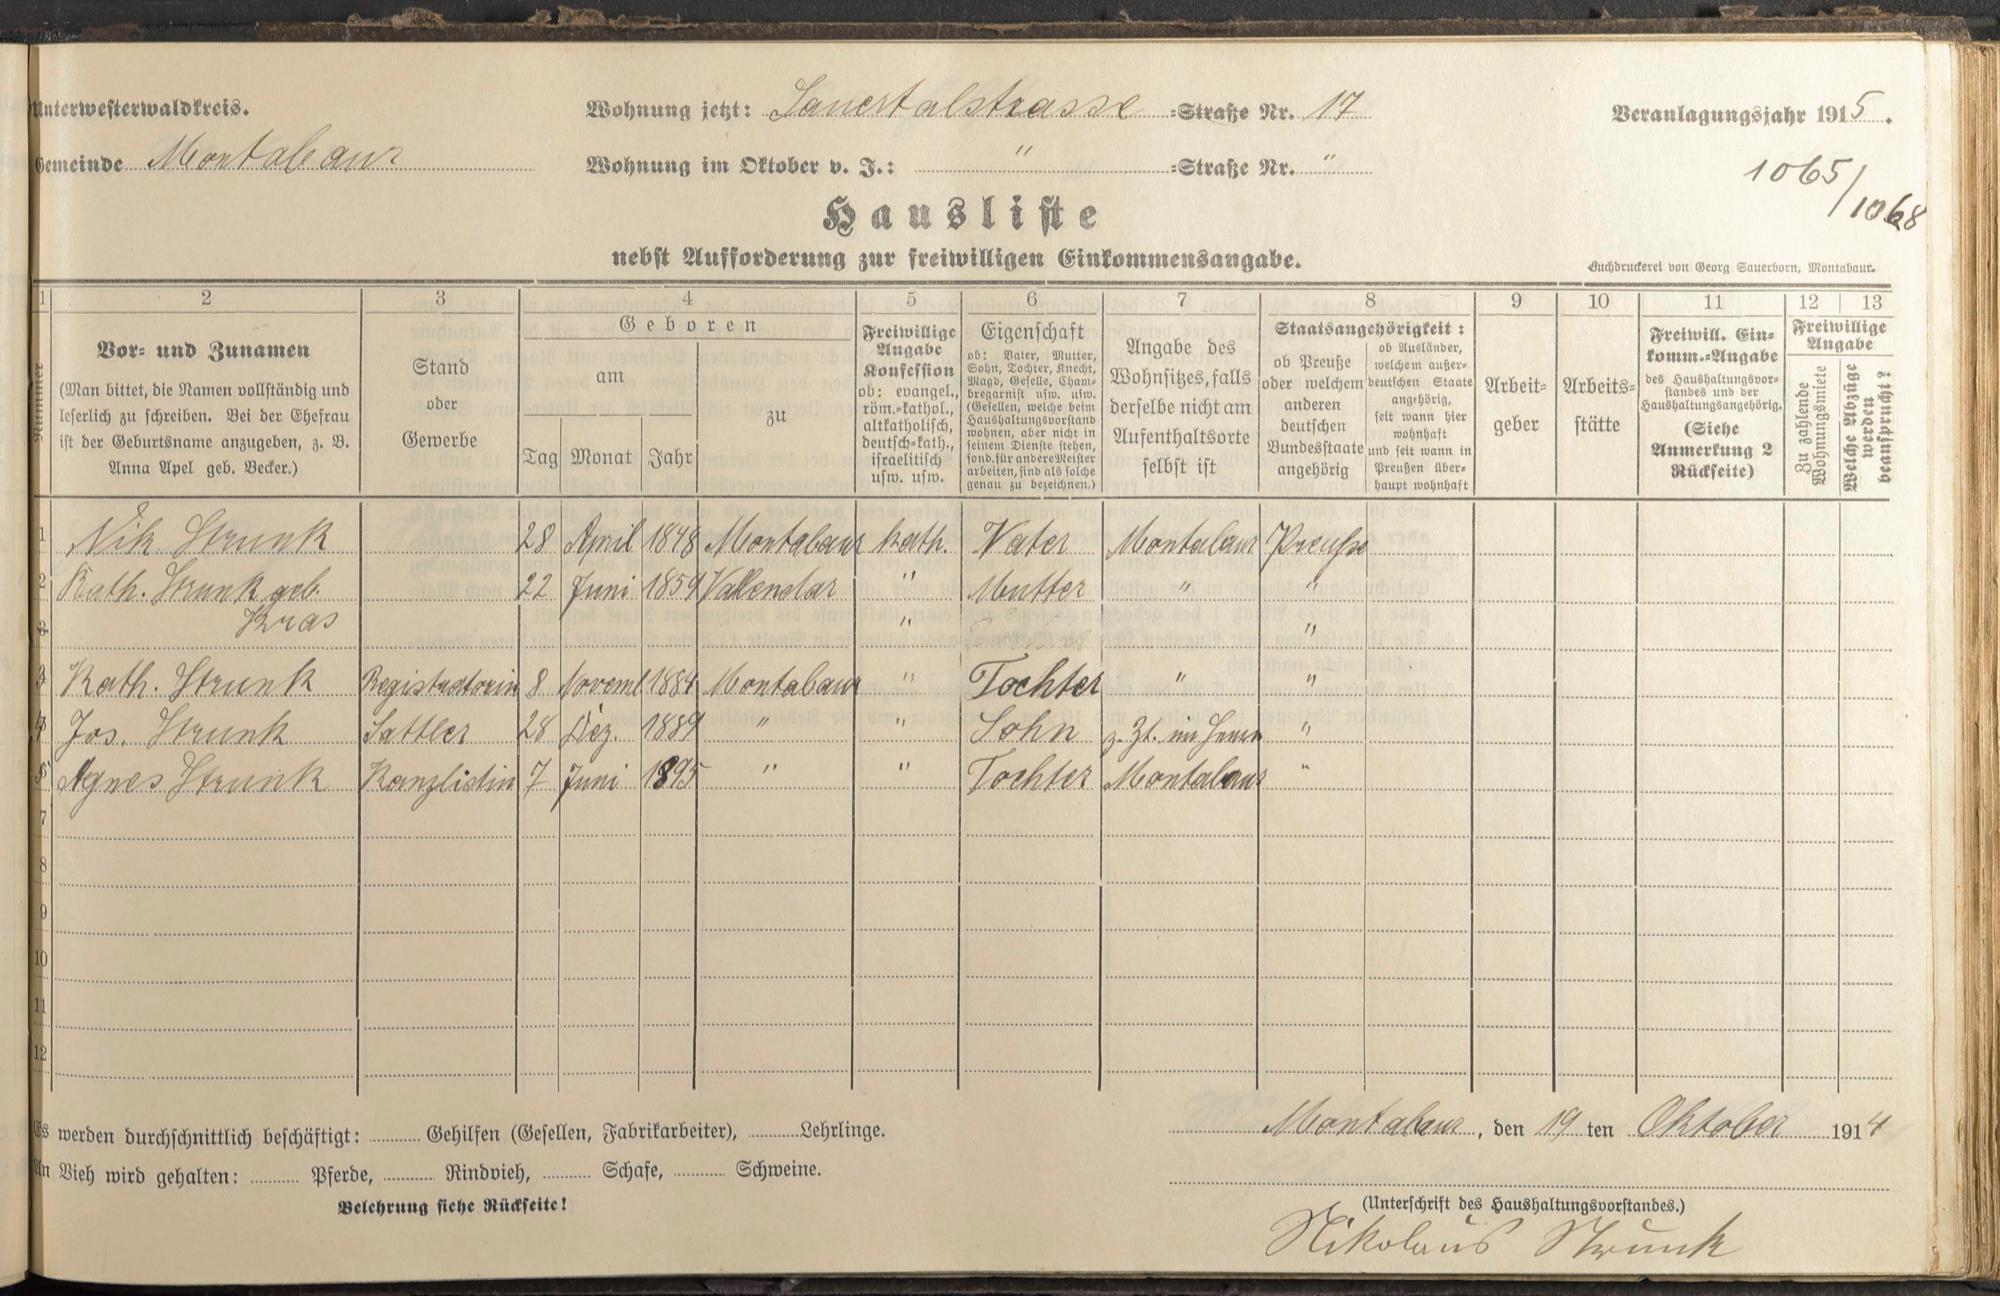 Unterwesterwaldkreis.
Wohnung jetzt: Sauertalstrasse =Straße Nr. 17
Veranlagungsjahr 1915.
Gemeinde Montabaur
Wohnung im Oktober v. J.: " =Straße Nr. "
1065/1068
Hausliste
nebst Aufforderung zur freiwilligen Einkommensangabe.
Buchdruckerei von Georg Sauerborn, Montabaur.
1 2 3 4 5 6 7 8 9 10 11 12 13
Nummer
Vor- und Zunamen
(Man bittet, die Namen vollständig und
leserlich zu schreiben. Bei der Ehefrau
ist der Geburtsname anzugeben, z. B.
Anna Apel geb. Becker.)
Stand
oder
Gewerbe
Geboren
am
zu
Tag Monat Jahr
Freiwillige
Angabe
Konfession
ob: evangel.,
röm.-kathol.,
altkatholisch,
deutsch-kath.,
israelitisch
usw. usw.
Eigenschaft
ob: Vater, Mutter,
Sohn, Tochter, Knecht,
Magd, Geselle, Cham-
bregarnist usw. usw.
(Gesellen, welche beim
Haushaltungsvorstand
wohnen, aber nicht in
seinem Dienste stehen,
sond. für andere Meister
arbeiten, sind als solche
genau zu bezeichnen.)
Angabe des
Wohnsitzes, falls
derselbe nicht am
Aufenthaltsorte
selbst ist
Staatsangehörigkeit:
ob Preuße
oder welchem
anderen
deutschen
Bundesstaate
angehörig
ob Ausländer,
welchem außer-
deutschen Staate
angehörig,
seit wann hier
wohnhaft
und seit wann in
Preußen über-
haupt wohnhaft
Arbeit-
geber
Arbeits-
stätte
Freiwill. Ein-
komm.-Angabe
des Haushaltungsvor-
standes und der
Haushaltungsangehörig.
(Siehe
Anmerkung 2
Rückseite)
Freiwillige
Angabe
Zu zahlende
Wohnungsmiete
Welche Abzüge
werden
beansprucht?
1 Nik Strunk 28 April 1848 Montabaur kath. Vater Montabaur Preuße
2 Kath. Strunk geb. 22 Juni 1859 Vallendar " Mutter " "
Kras " "
3 Kath. Strunk Registratorin 8 Novemb 1884 Montabaur " Tochter " "
4 Jos. Strunk Sattler 28 Dez. 1889 " " Sohn z. Zt. im "
5 Agnes Strunk Kanzlistin 7 Juni 1895 " " Tochter Montabaur "
7
8
9
10
11
12
Es werden durchschnittlich beschäftigt: Gehilfen (Gesellen, Fabrikarbeiter), Lehrlinge.
Montabaur, den 19 ten Oktober 1914
An Vieh wird gehalten: Pferde, Rindvieh, Schafe, Schweine.
Belehrung siehe Rückseite!
(Unterschrift des Haushaltungsvorstandes.)
Nikolaus Strunk